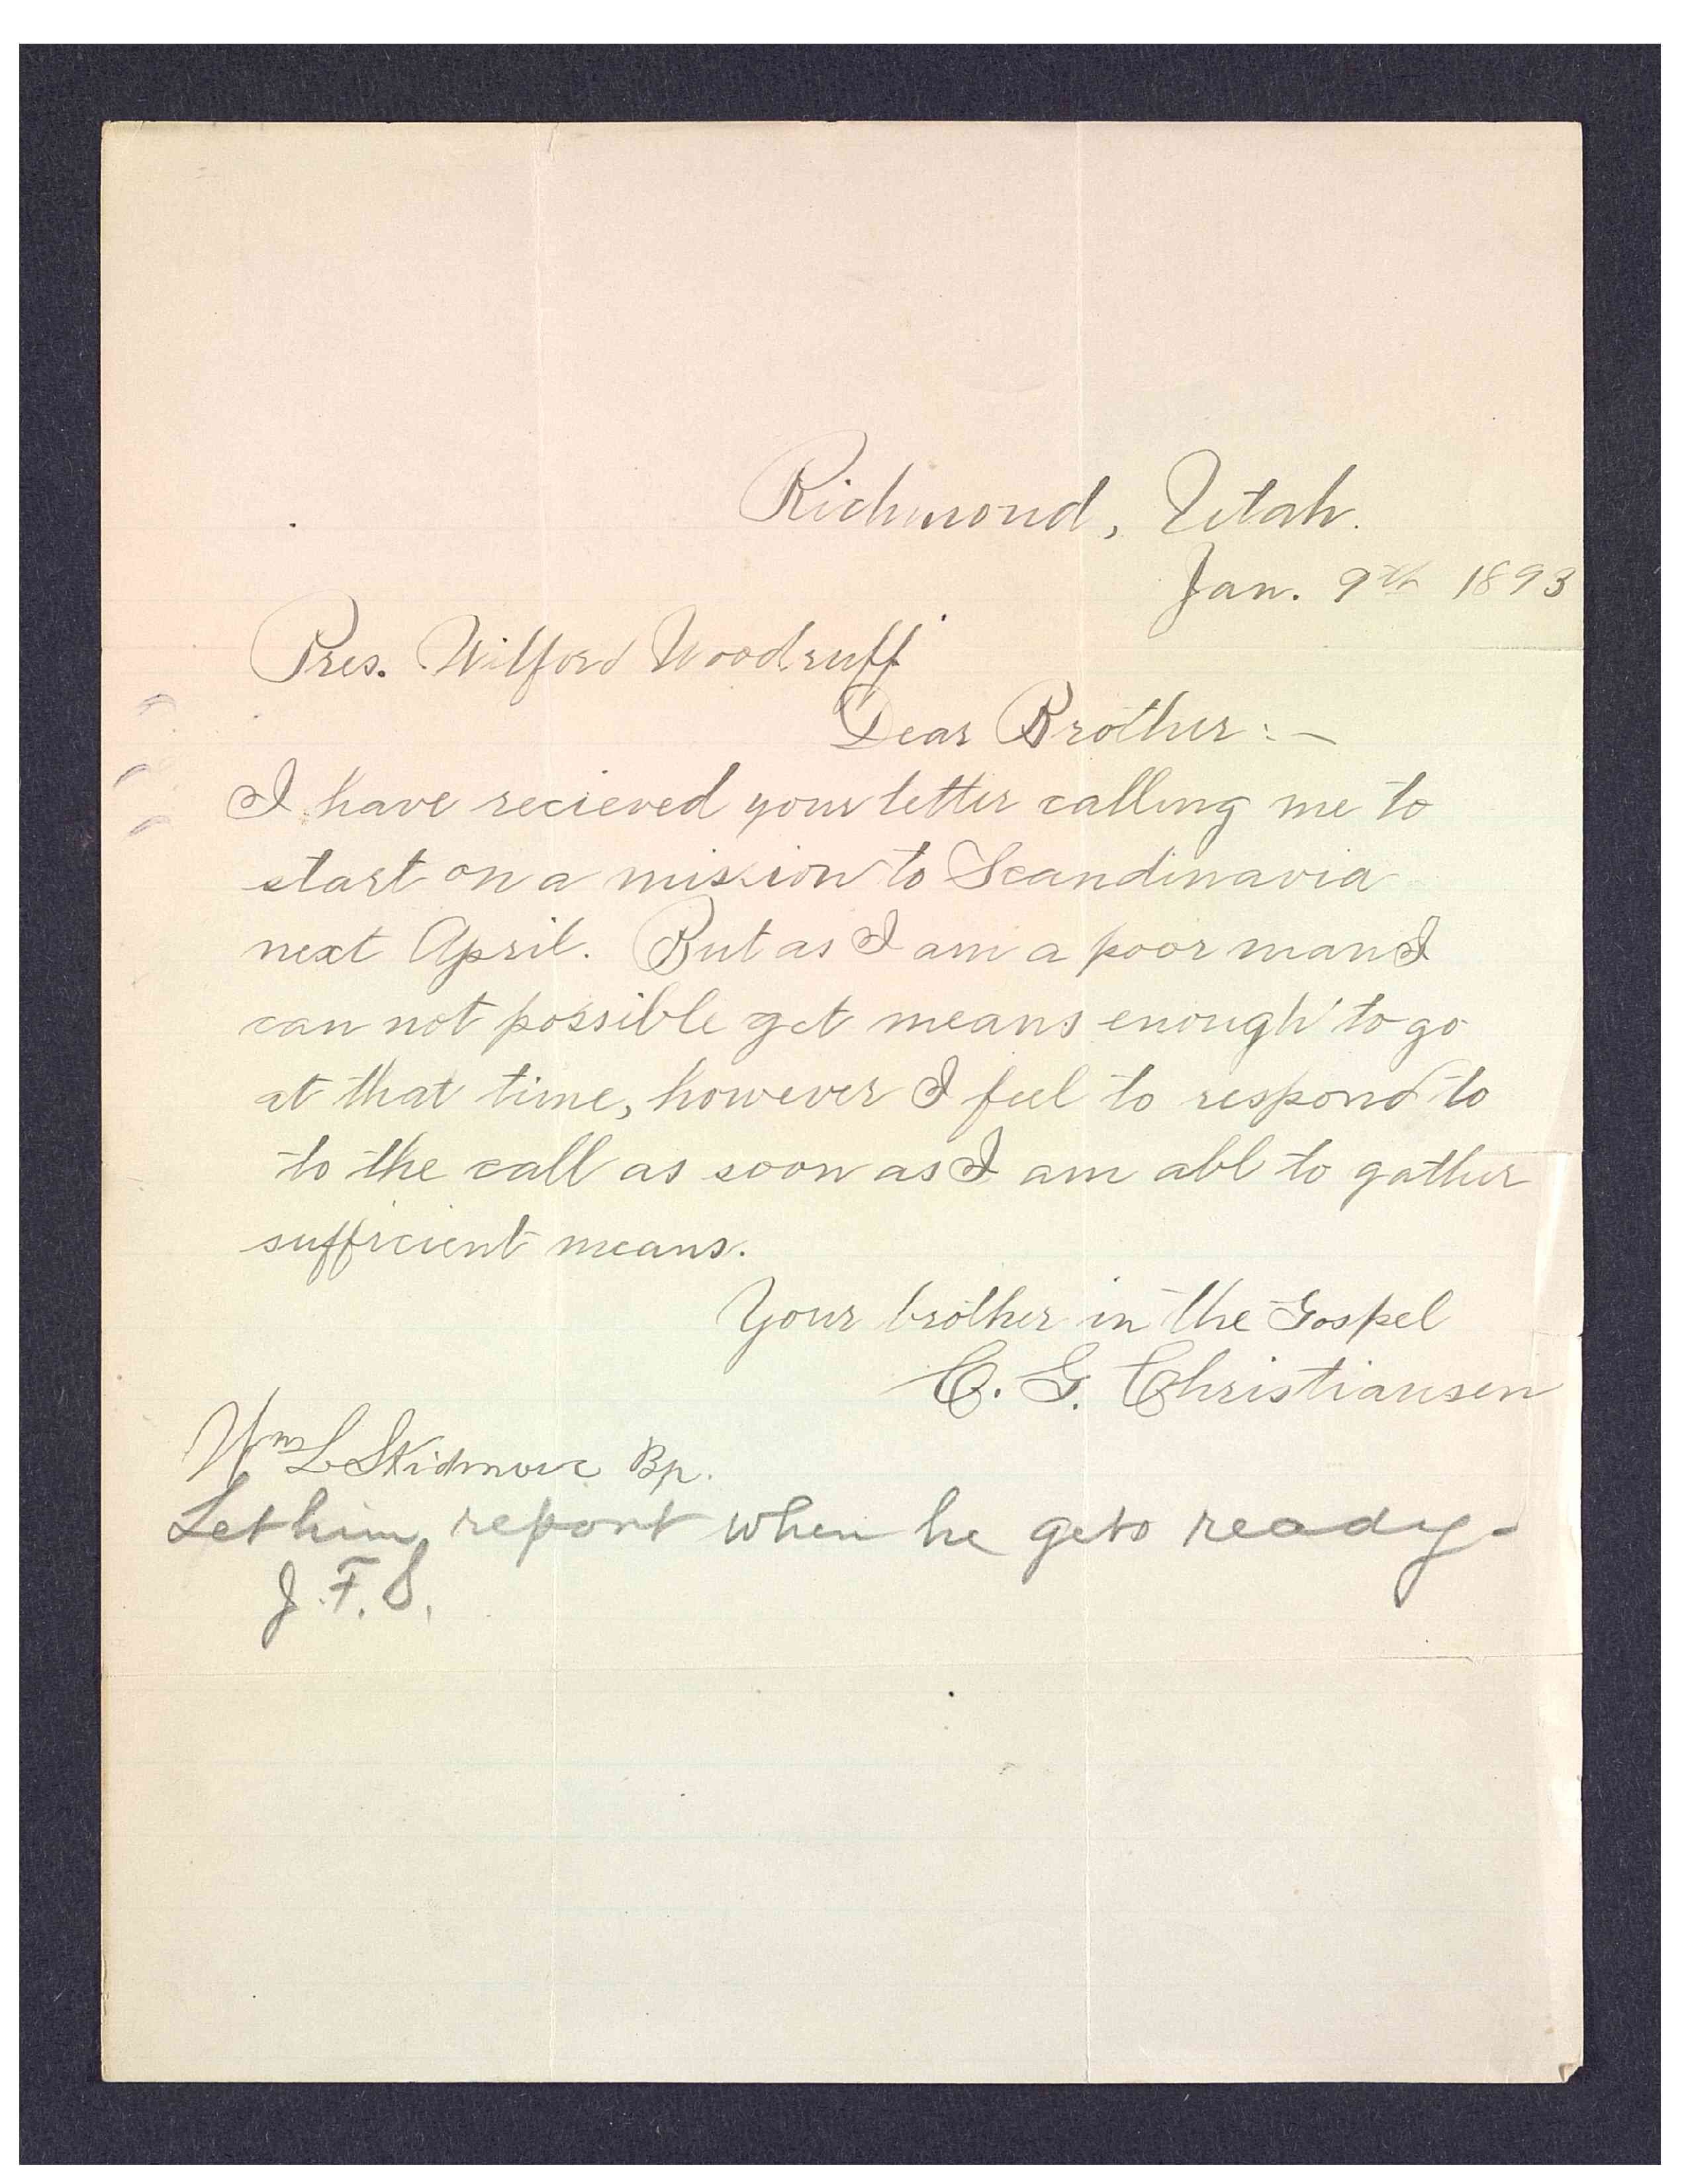 Richmond, Utah.
Jan. 9th 1893
Pres. Wilford Woodruff
Dear Brother:—
I have recieved your letter calling me to
start on a mission to Scandinavia
next April. But as I am a poor man I
can not possible get means enough to go
at that time, however I feel to respond to
to the call as soon as I am abl to gather
sufficient means.
Your brother in the Gospel
C. G. Christiansen
Wm L Skidmore Bp.
Let him report when he gets ready-
J. F. S.